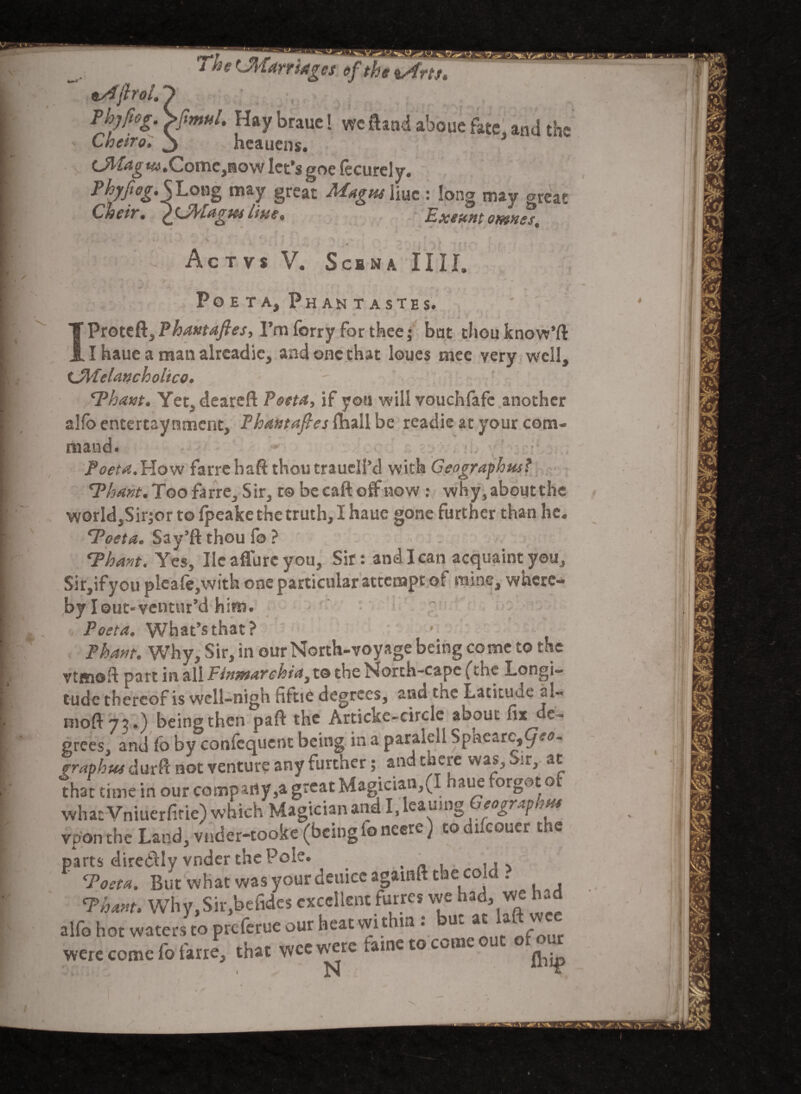 The Marriages of the Arts.
Aſtrol.
Phyſiog. ſimul. Hay braue! we ſtand aboue fate, and the
Cheiro. heauens.
Magus. Come, now let's goe ſecurely.
Phyſiog. Long may great Magus liue: long may great
Cheir. Magus liue. Exeunt omnes.
ACTVS V. SCENA IIII.
POETA, PHANTASTES.
I Proteſt, Phantaſtes, I'm ſorry for thee; but thou know'ſt
I haue a man alreadie, and one that loues mee very well,
Melancholico.
Phant. Yet, deareſt Poeta, if you will vouchſafe another
alſo entertaynment, Phantaſtes ſhall be readie at your com-
mand.
Poeta. How farre haſt thou trauell'd with Geographus?
Phant. Too farre, Sir, to be caſt off now: why, about the
world, Sir; or to ſpeake the truth, I haue gone further than he.
Poeta. Say'ſt thou ſo?
Phant. Yes, Ile aſſure you, Sir: and I can acquaint you,
Sir, if you pleaſe, with one particular attempt of mine, where-
by I out-ventur'd him.
Poeta. What's that?
Phant. Why, Sir, in our North-voyage being come to the
vtmoſt part in all Finmarchia, to the North-cape (the Longi-
tude thereof is well-nigh fiftie degrees, and the Latitude al-
moſt 73.) being then paſt the Articke-circle about ſix de-
grees, and ſo by conſequent being in a paralell Spheare, Geo-
graphus durſt not venture any further; and there was, Sir, at
that time in our company, a great Magician, (I haue forgot of
what Vniuerſitie) which Magician and I, leauing Geographus
vpon the Land, vnder-tooke (being ſo neere) to diſcouer the
parts directly vnder the Pole.
Poeta. But what was your deuice againſt the cold?
Phant. Why, Sir, beſides excellent furres we had, we had
alſo hot waters to preſerue our heat within: but at laſt wee
were come ſo farre, that wee were faine to come out of our
N ſhip